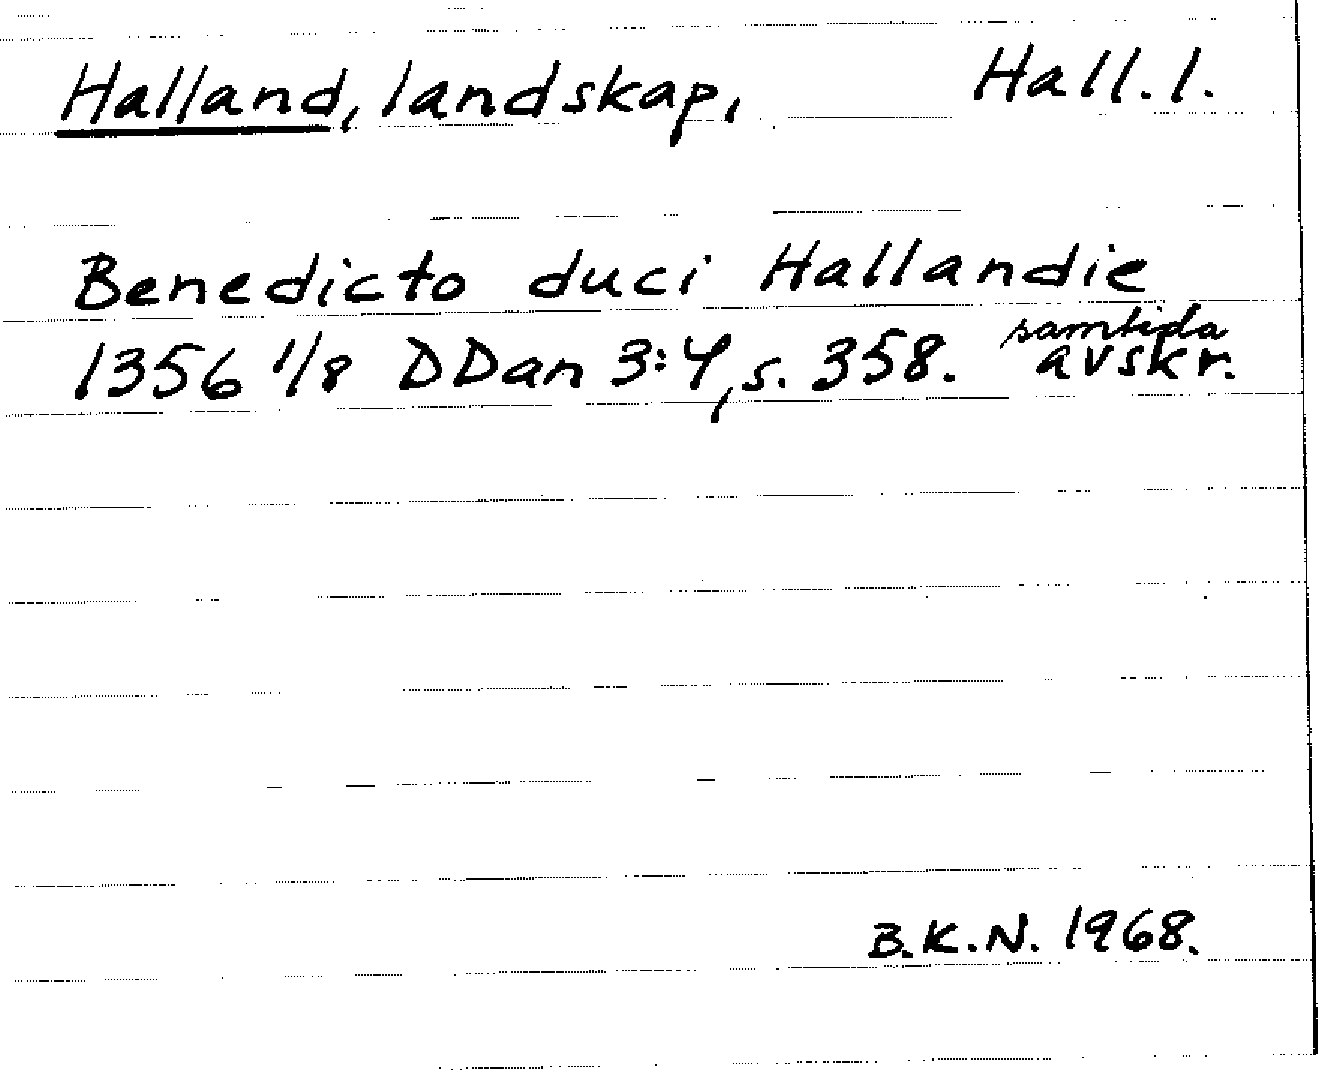 Halland, landskap, Hall. l.
Benedicto duci Hallandie
1356 1/8 DDan 3:4, s. 358. samtida avskr.
B.K.N. 1968.